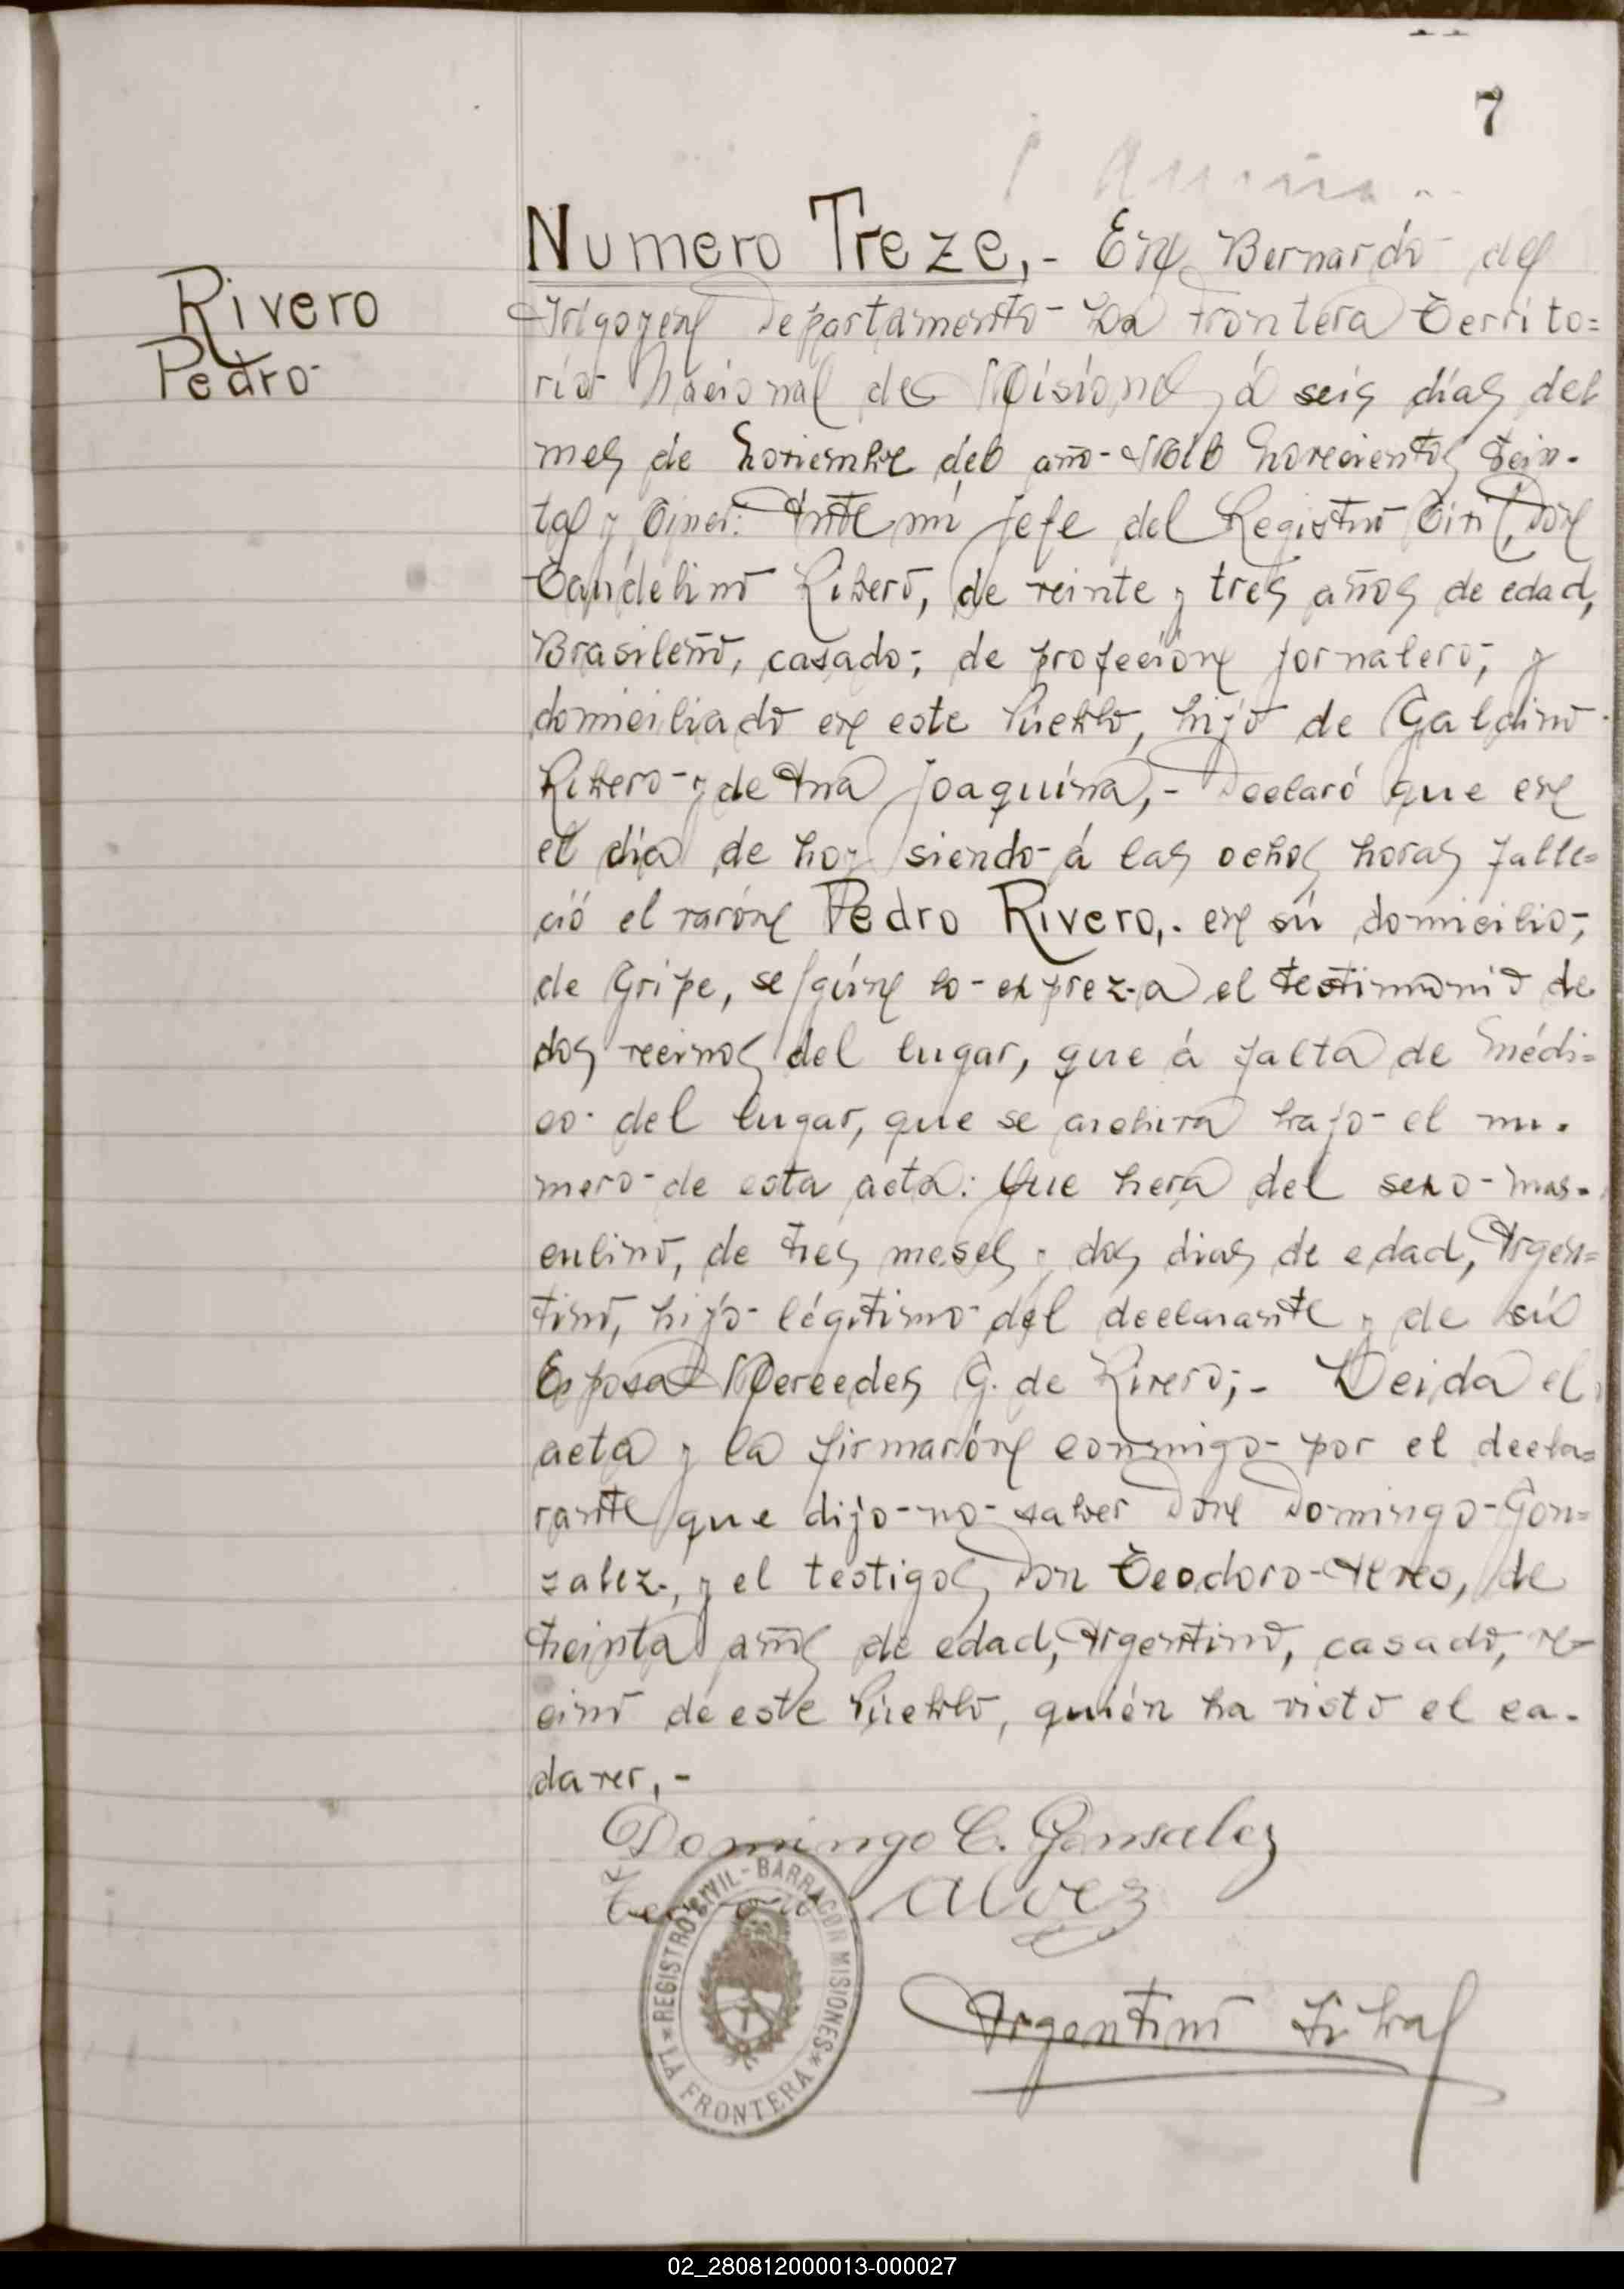 7
Numero Treze,.- En Bernardo de
Irigoyen Departamento La Frontera Territo=
rio Nacional de Misiones, á seis días del
mes de Noviembre del año Mil Novecientos Trein-
ta y Cinco: Ante mí jefe del Registro Civil, Don
Candelino Ribero, de veinte y tres años de edad,
Brasileño, casado; de profecion jornalero; y
domiciliado en este Pueblo, hijo de Galdino
Ribero y de Ana Joaquina,- Declaró que en
el día de hoy siendo á las ochos horas falle=
ció el varón Pedro Rivero,. en sú domicilio;
de Gripe, según lo expreza el testimonio de
dos vecinos del lugar, que á falta de Médi=
co del lugar, que se archiva bajo el nu-
mero de esta acta: Que hera del sexo mas-
culino, de tres meses y dos dias de edad, Argen=
tino, hijo légitimo del declarante y de sú
Esposa Mercedes G. de Rivero;- Leida el
acta y la firmarón conmigo por el decla=
rante que dijo no saber Don Domingo Gon=
zalez, y el testigos Don Teodoro Alves, de
treinta años de edad, Argentino, casado, ve-
cino de este Pueblo, quién ha visto el ca-
daver,-
Rivero
Pedro
Domingo C. Gonsalez
Teodoro Alvez
REGISTRO CIVIL - BARRACON MISIONES * LA FRONTERA *
Argentino
02_280812000013-000027